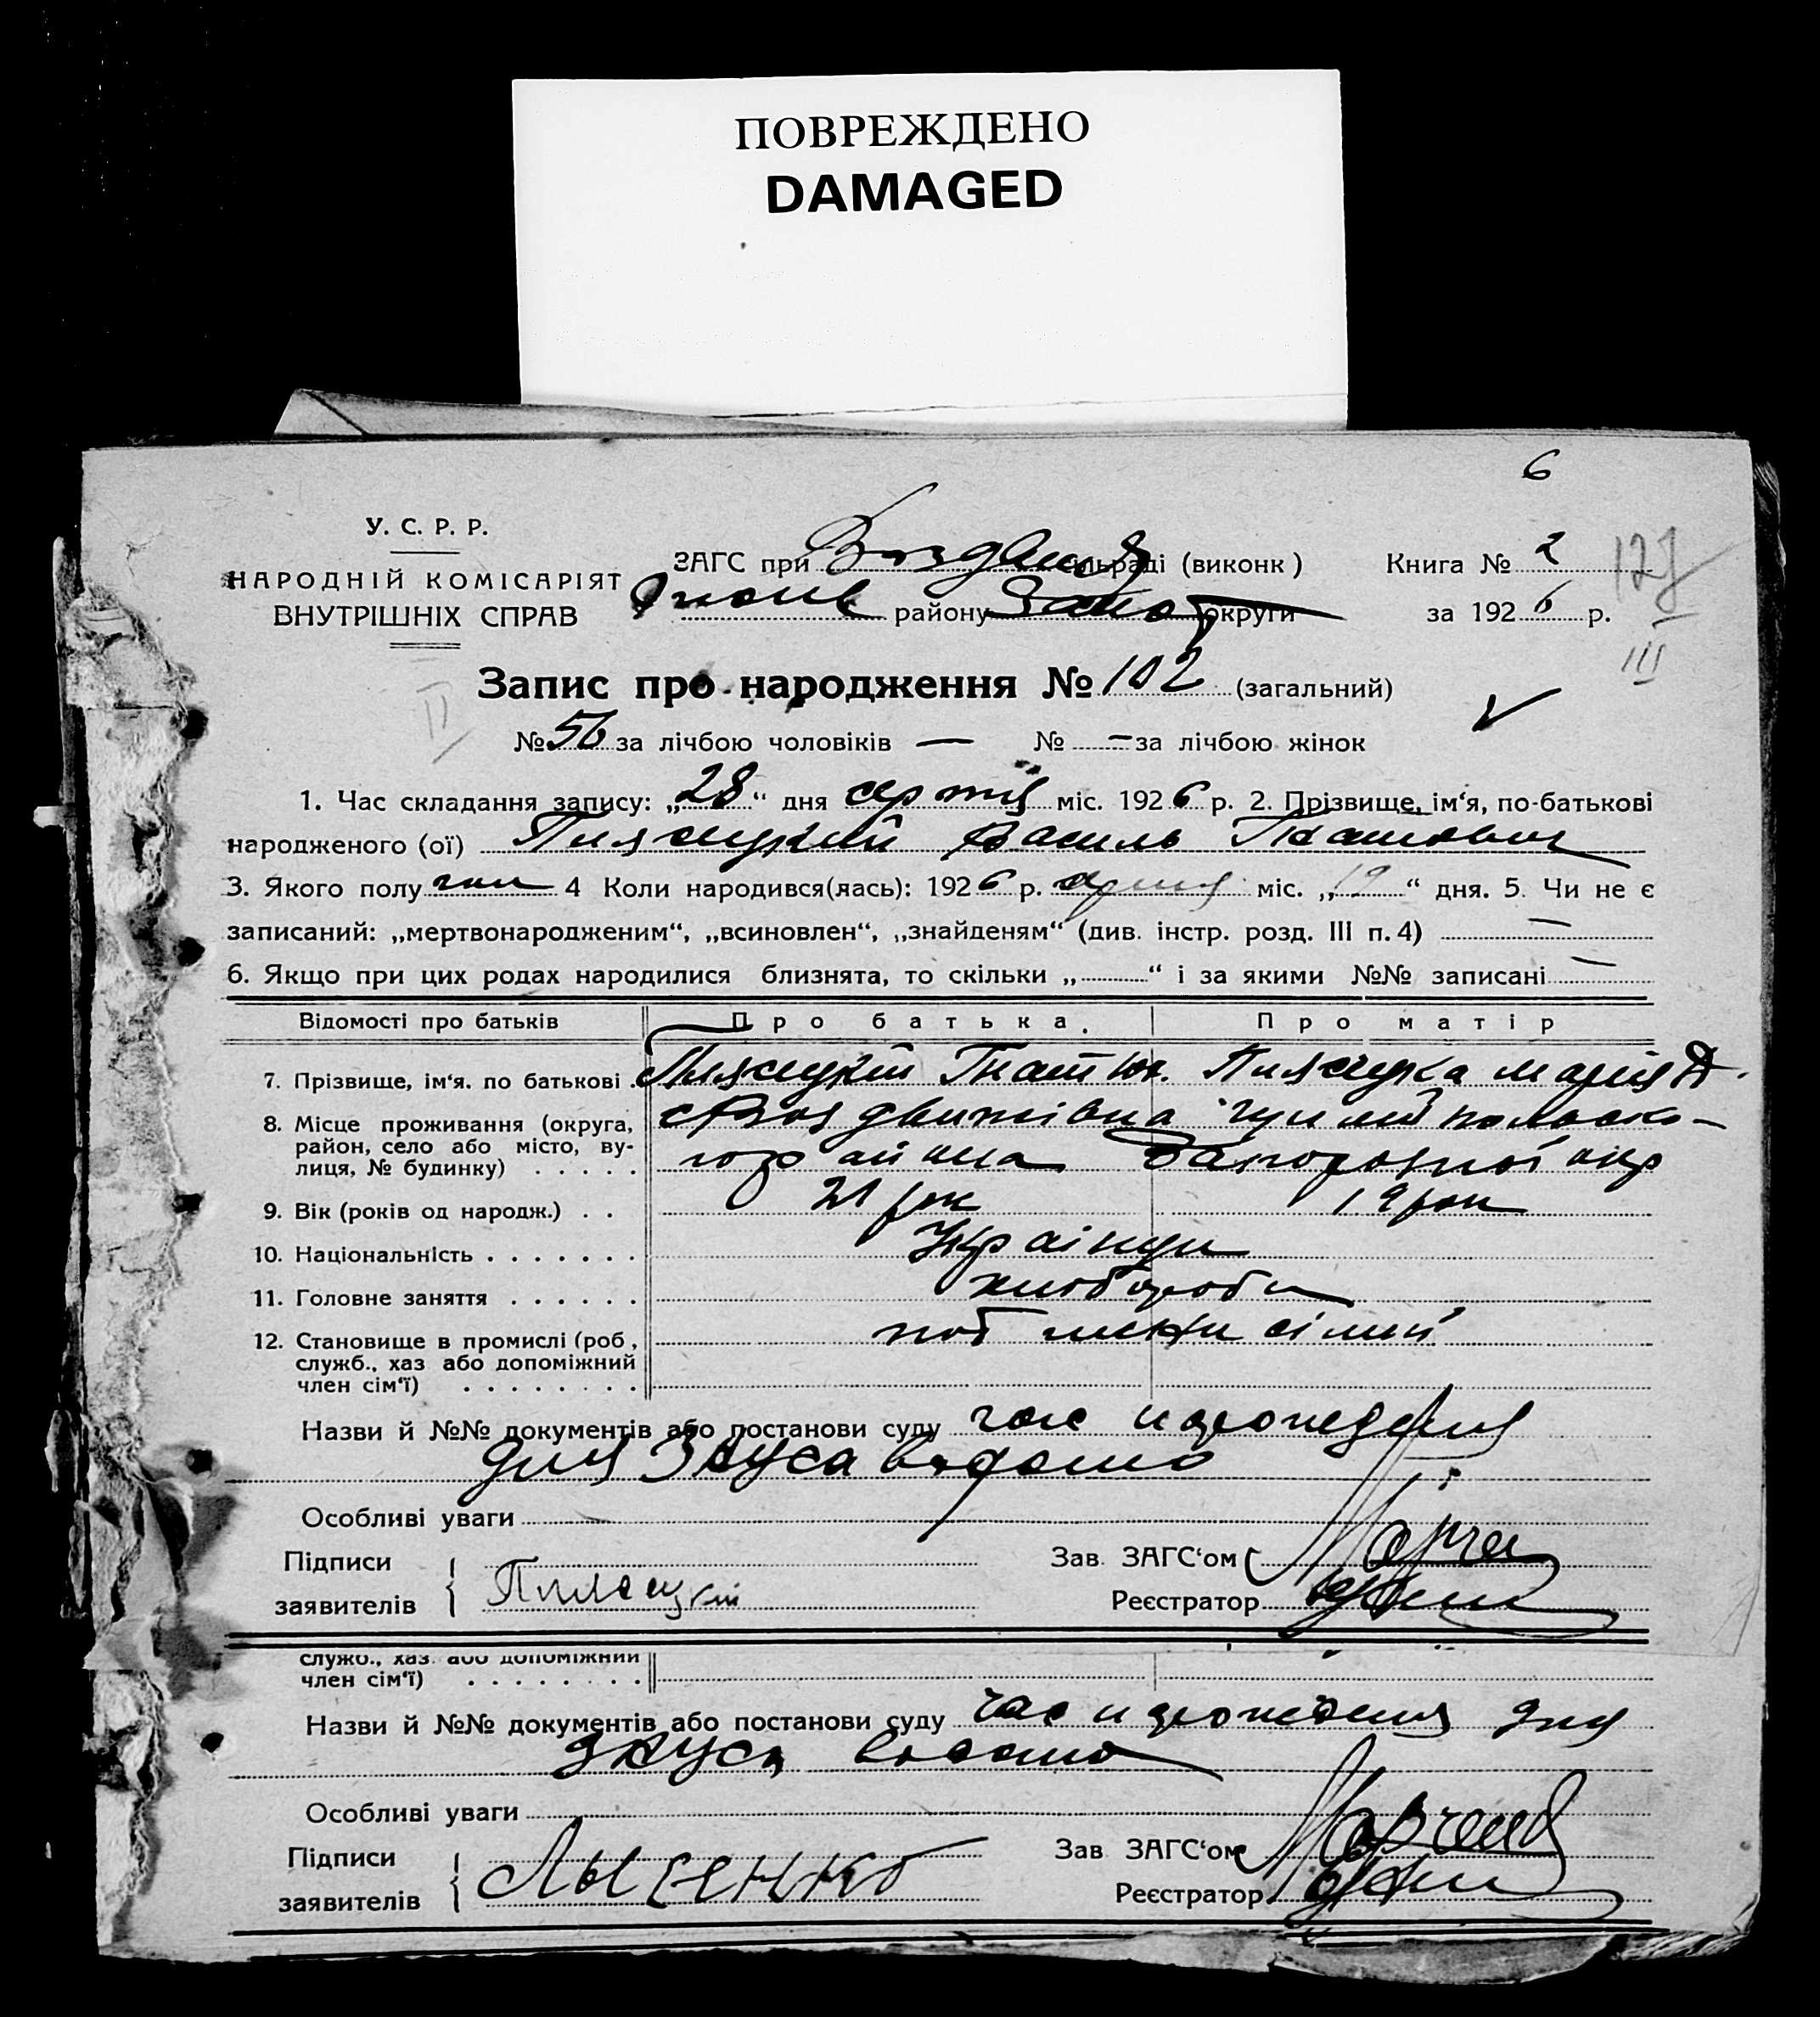 ПОВРЕЖДЕНО
DAMAGED
6
У. С. Р. Р.
НАРОДНІЙ КОМІСАРІЯТ
ВНУТРІШНІХ СПРАВ
ЗАГС при сільраді (виконк)
району Запор округи
Книга № 2
за 1926 р.
127
III
II
Запис про народження № 102 (загальний)
№ 56 за лічбою чоловіків — № — за лічбою жінок
1. Час складання запису: „28“ дня серпня міс. 1926 р. 2. Прізвище, ім‘я, по-батькові
народженого (ої) Василь Гнатович
3. Якого полу чол 4 Коли народився(лась): 1926 р. міс. „19“ дня. 5. Чи не є
записаний: „мертвонародженим“, „всиновлен“, „знайденям“ (див. інстр. розд. III п. 4) —
6. Якщо при цих родах народилися близнята, то скільки „ “ і за якими №№ записані —
Відомості про батьків Про батька. Про матір
7. Прізвище, ім‘я. по батькові . Гнат Юх. Марія
8. Місце проживання (округа, с Воздвижівка Гуляйпольско-
район, село або місто, ву- го району Запорожної окр
лиця, № будинку) . . . . .
9. Вік (років од народж.) . . 21 рок 19 рок
10. Національність . . . . . . . Українци
11. Головне заняття . . . . . . хлібороби
12. Становище в промислі (роб,
служб., хаз або допоміжний
член сім‘ї) . . . . . . . .
Назви й №№ документів або постанови суду час народження
для ЗАГСа відомо
Особливі уваги
Підписи
заявителів
Зав. ЗАГС‘ом
Реєстратор
служб., хаз. або допоміжний
член сім‘ї) . . . . . . . .
Назви й №№ документів або постанови суду час народження для
ЗАГСа відомо
Особливі уваги
Підписи
заявителів Лысенко
Зав ЗАГС‘ом
Реєстратор